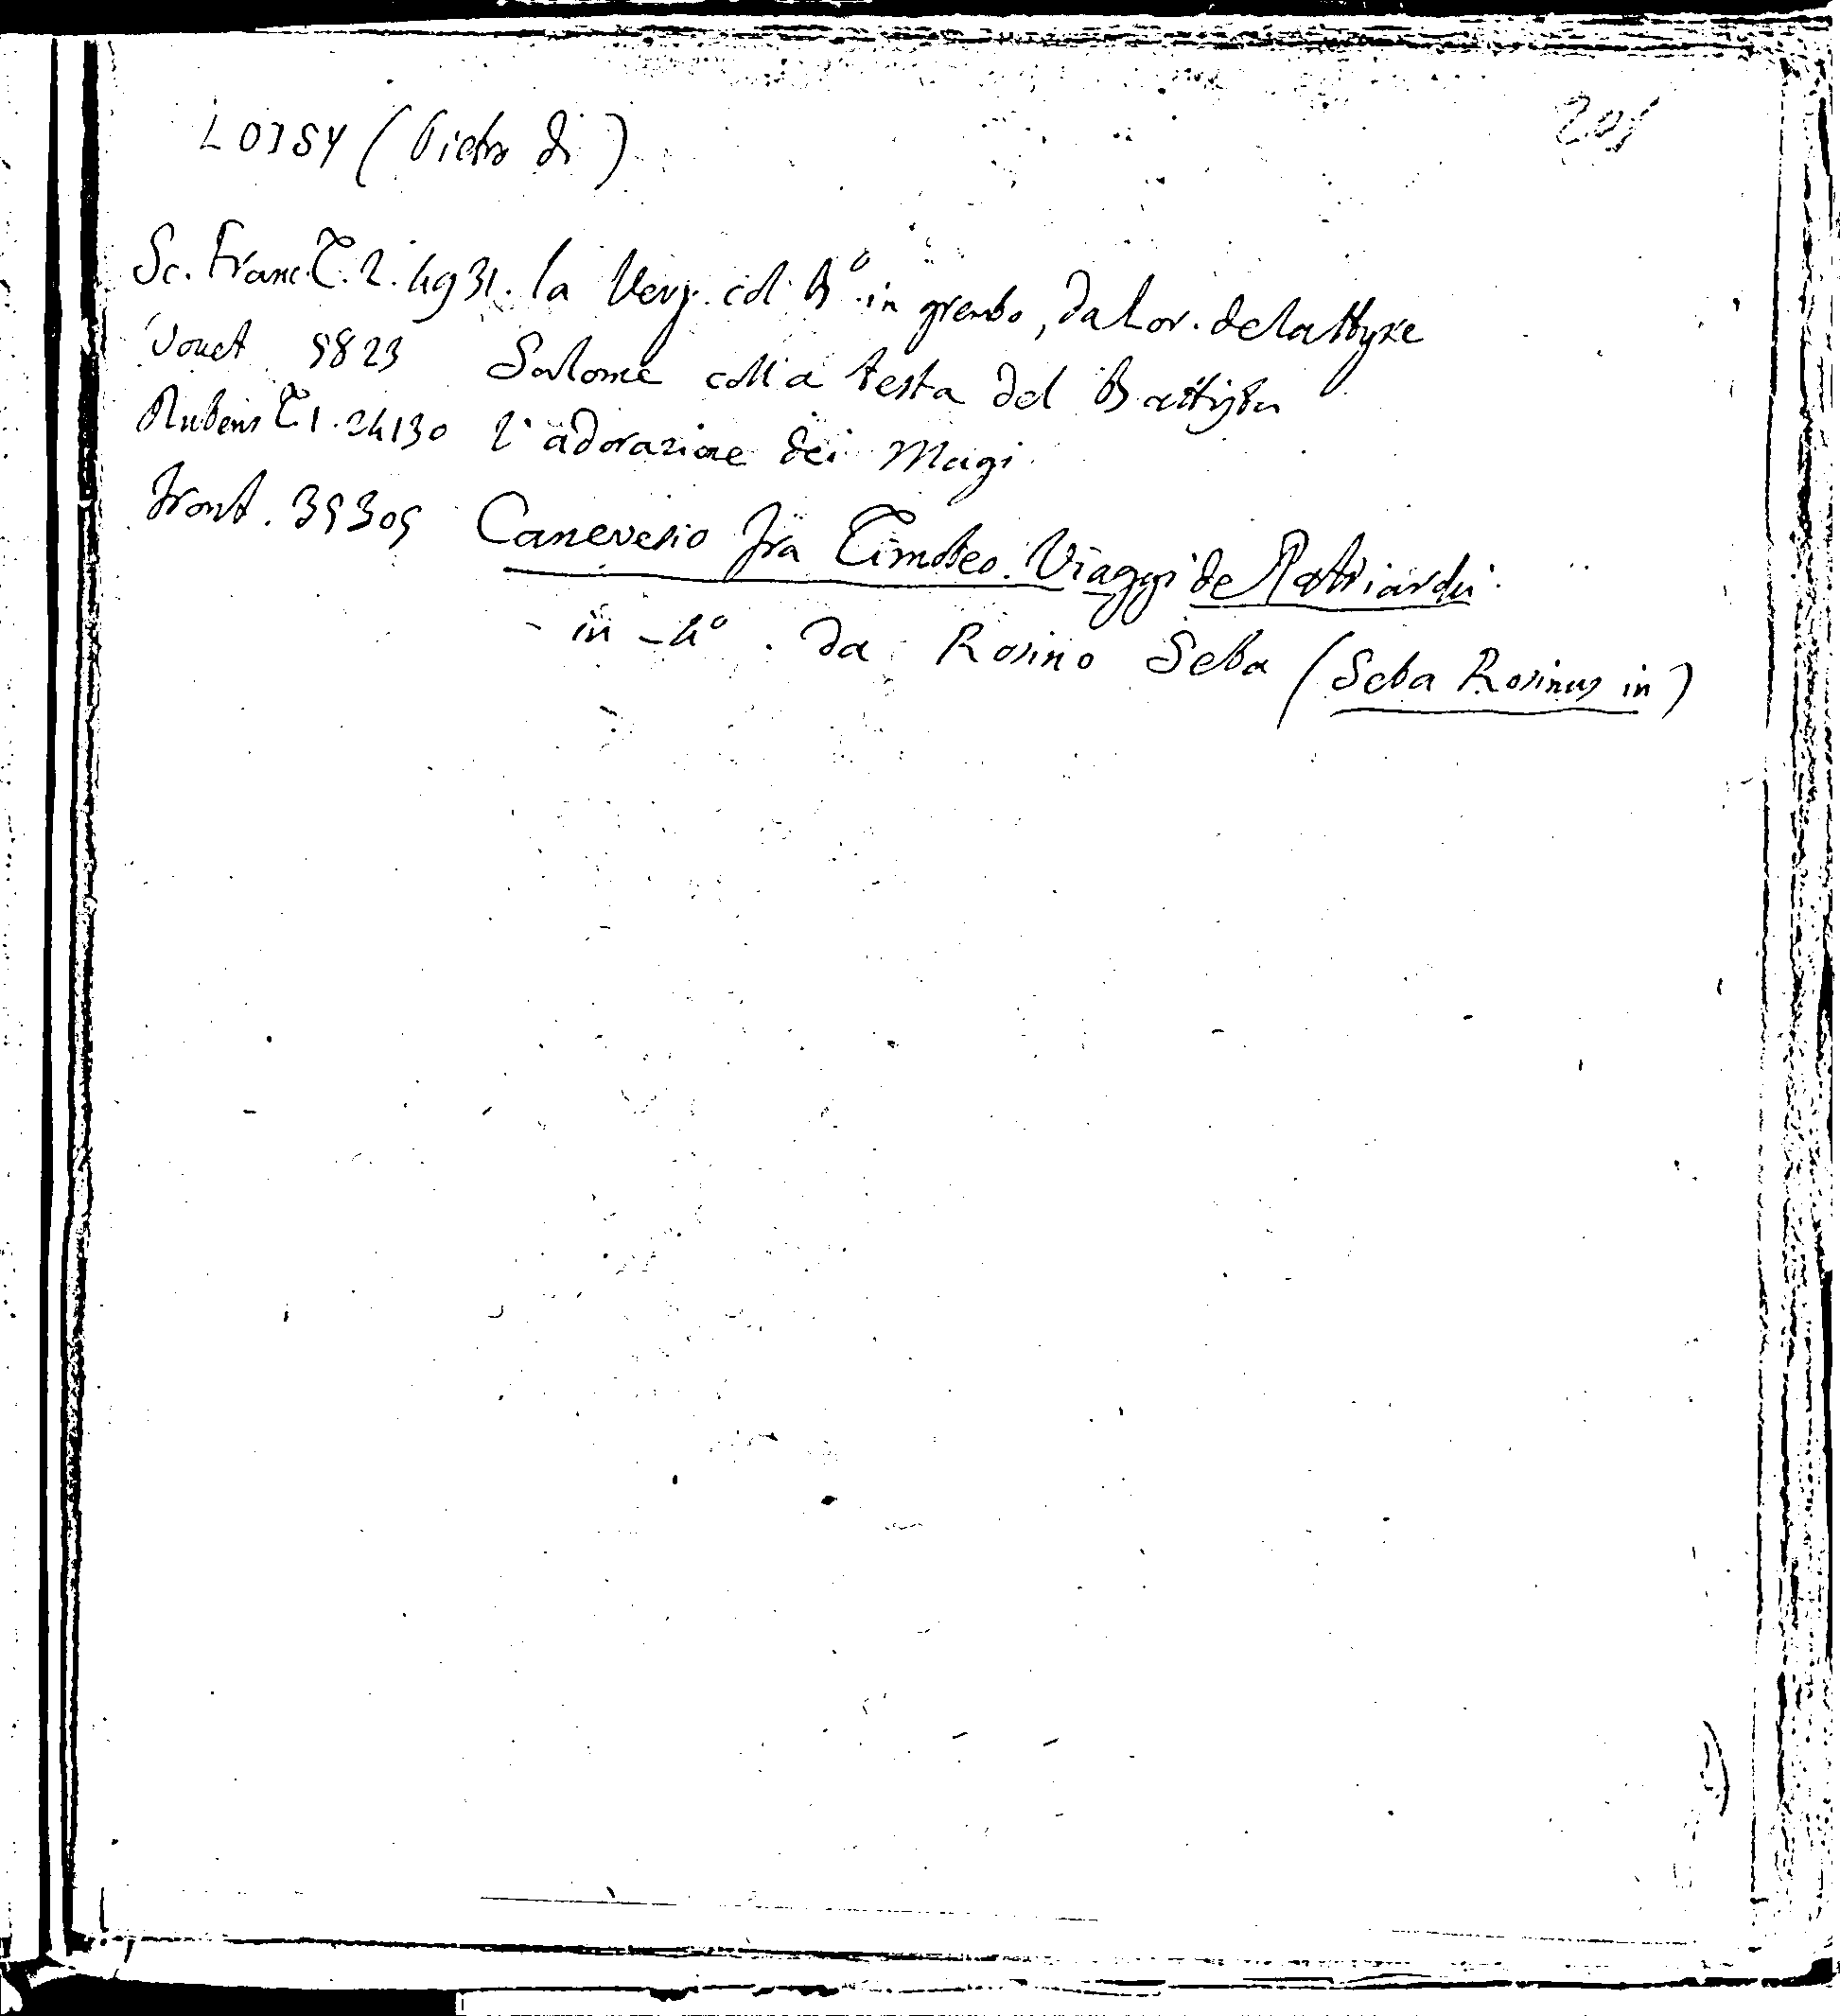 201
LOISY (Pietro di)
Sc. Franc. T. 2. 4931. la Verg. col Bº in grembo, da Lor. de la Hyre
Vouet 5823 Salome colla testa del Battista
Rubens T. 1. 24130 l'adorazione dei Magi
Front. 35305 Canevesio fra Timoteo. Viaggi de Patriarchi
in-4º. da Rosino Seba (Seba Rosinus in)